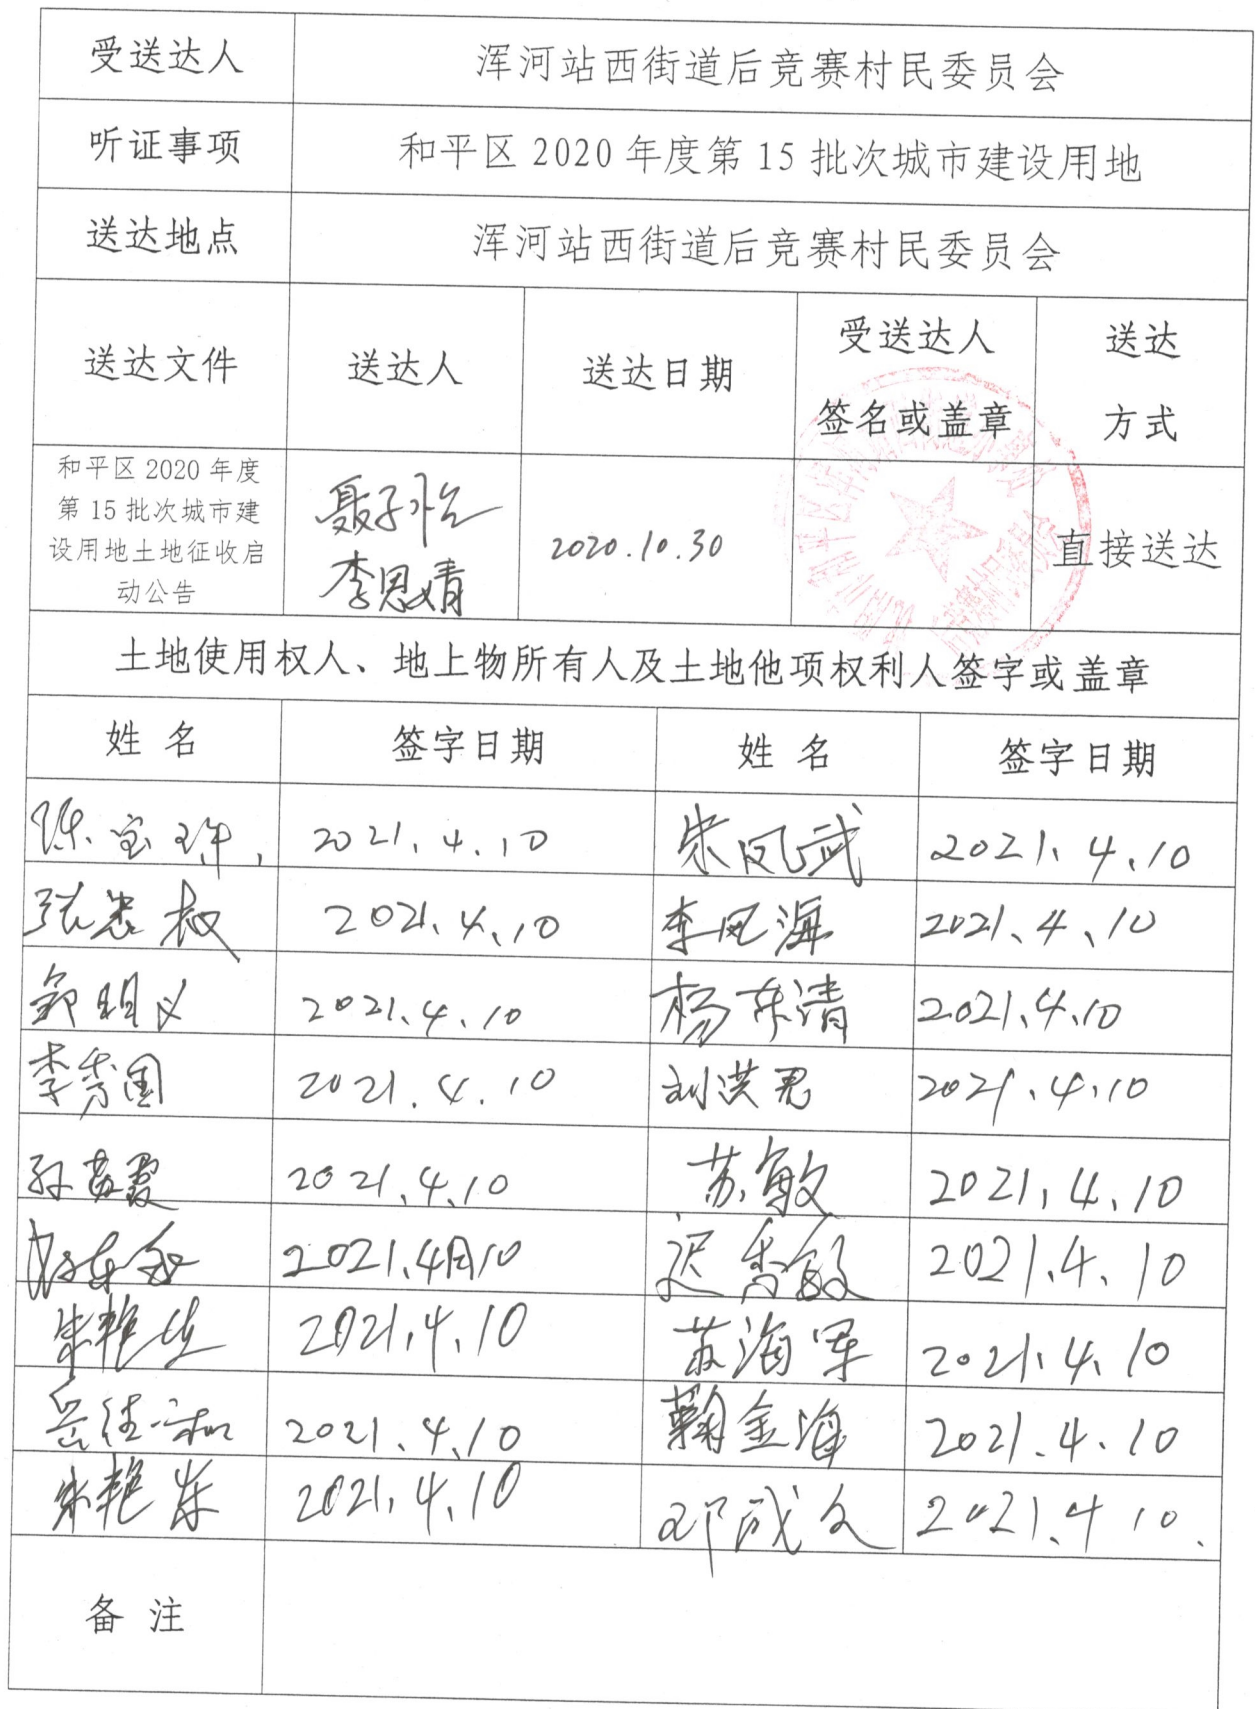 受送达人 浑河站西街道后竞赛村民委员会
听证事项 和平区 2020 年度第 15 批次城市建设用地
送达地点 浑河站西街道后竞赛村民委员会
送达文件 送达人 送达日期 受送达人 签名或盖章 送达 方式
和平区 2020 年度
第 15 批次城市建
设用地土地征收启
动公告
聂子怡
李思婧
2020.10.30
直接送达
土地使用权人、地上物所有人及土地他项权利人签字或盖章
姓 名 签字日期 姓 名 签字日期
陈宝珍 2021.4.10 朱凤武 2021.4.10
2021.4.10 李凤海 2021.4.10
2021.4.10 杨东清 2021.4.10
李秀国 2021.4.10 刘洪君 2021.4.10
2021.4.10 苏敏 2021.4.10
2021.4月10 迟秀敏 2021.4.10
2021.4.10 苏海军 2021.4.10
2021.4.10 鞠金海 2021.4.10
朱艳东 2021.4.10 邓成文 2021.4 10.
备 注